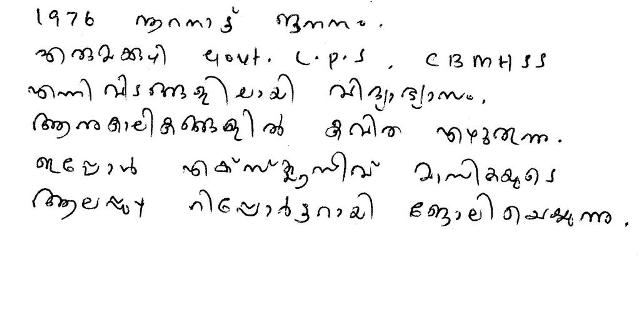 1976 നൂറനാട്ട് ജനനം.
എരുമക്കുഴി Govt. L.P.S, CBMHSS
എന്നിവിടങ്ങളിലായി വിദ്യാഭ്യാസം.
ആനുകാലികങ്ങളിൽ കവിത എഴുതുന്നു.
ഇപ്പോൾ എക്സ്ക്ലൂസീവ് മാസികയുടെ
ആലപ്പുഴ റിപ്പോർട്ടറായി ജോലിചെയ്യുന്നു.